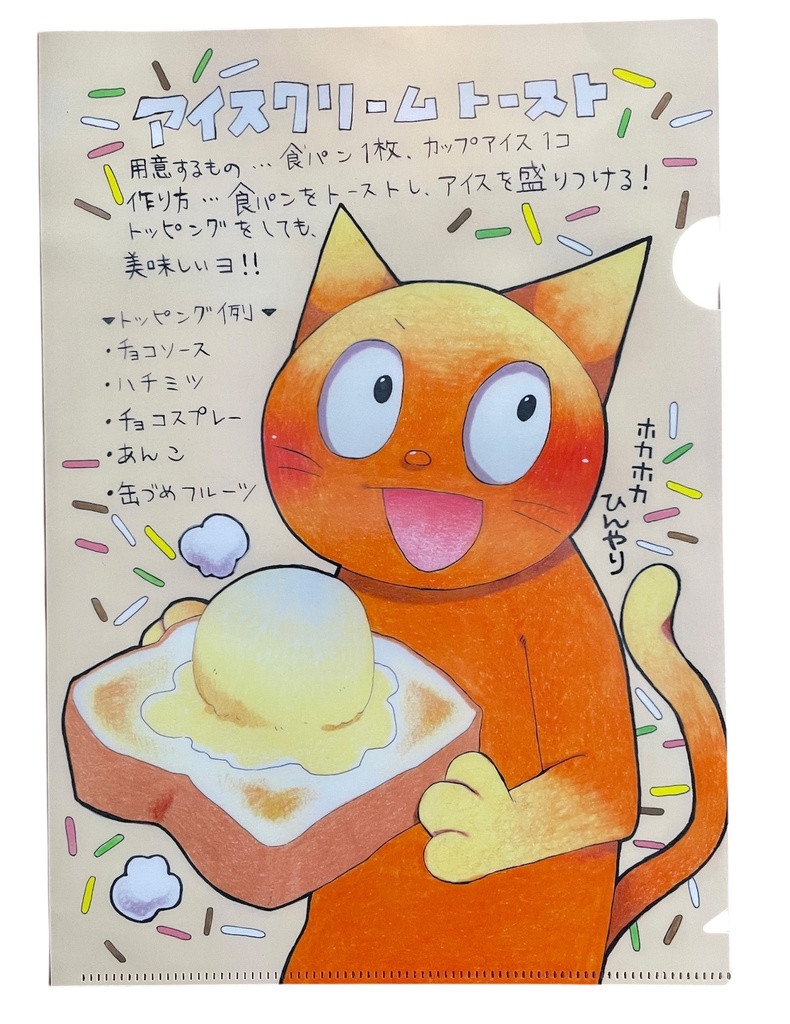 アイスクリーム トースト
用意するもの … 食パン1枚、カップアイス1コ
作り方 … 食パンをトーストし、アイスを盛りつける!
トッピングをしても、
美味しいヨ!!
▼トッピング例▼
・チョコソース
・ハチミツ
・チョコスプレー
・あんこ
・缶づめフルーツ
ホカホカ
ひんやり